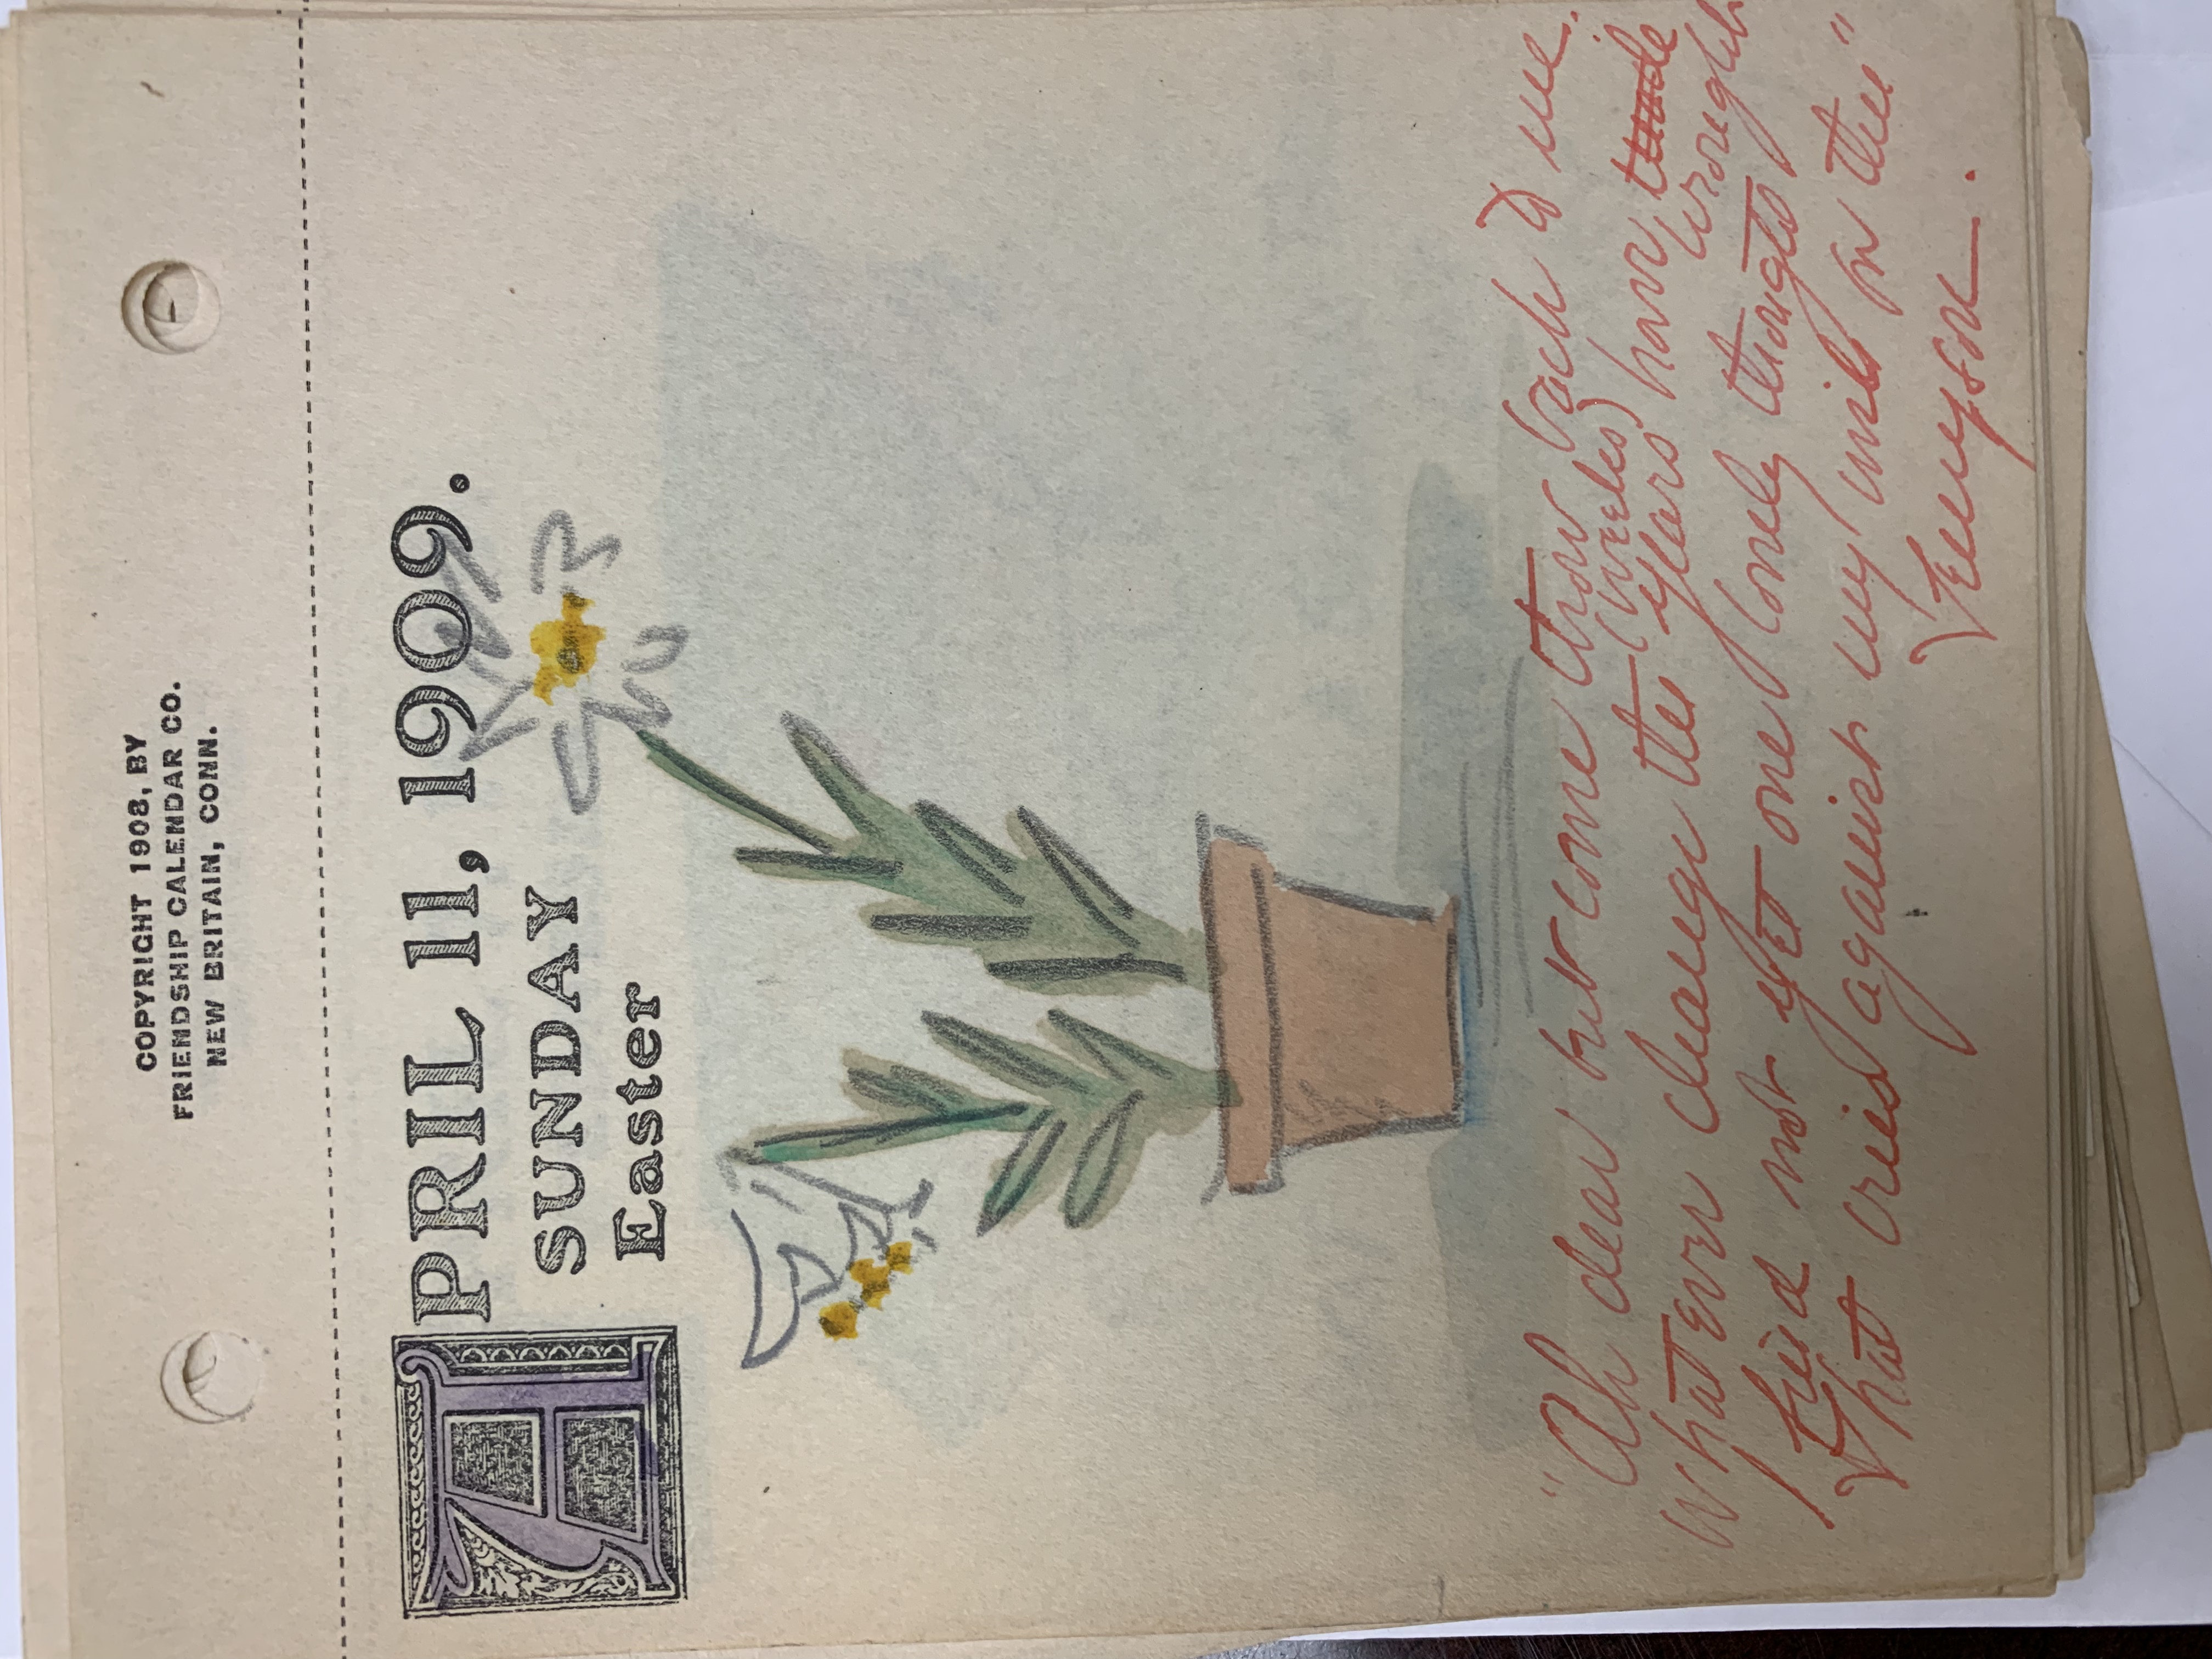 COPYRIGHT 1908, BY
FRIENDSHIP CALENDAR CO.
NEW BRITAIN, CONN.
APRIL 11, 1909.
SUNDAY
Easter
"Ah dear but come thou back to me.
(weeks)
Whatever change the years have made
wrought
I find not yet one lonely thought
That cries against my wish for thee"
Tennyson.